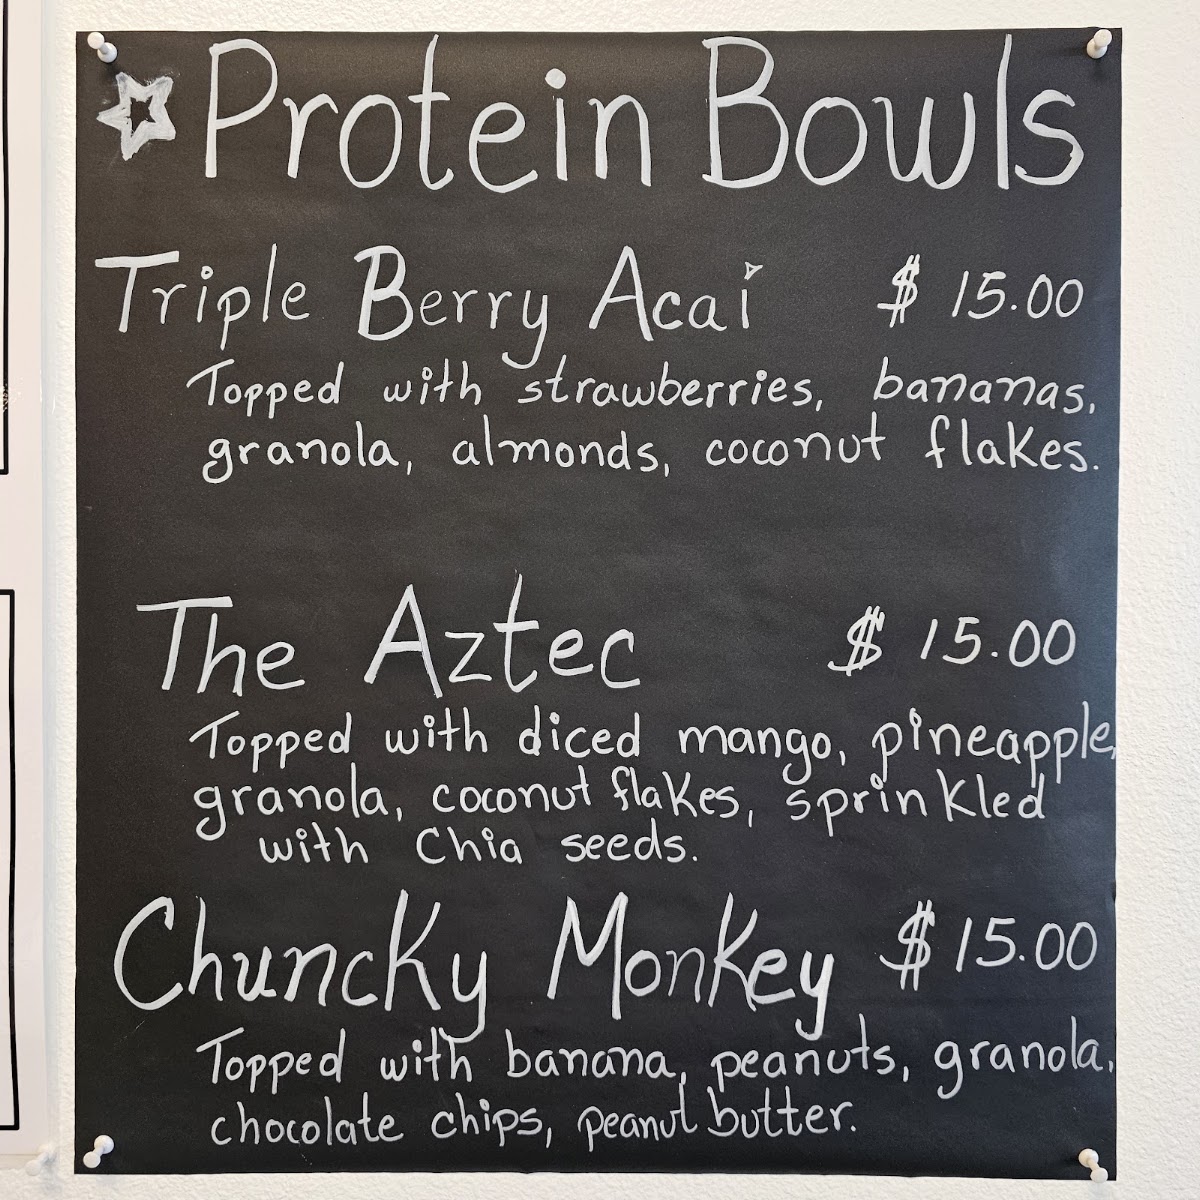 Protein Bowls
Triple Berry Acai $ 15.00
Topped with strawberries, bananas,
granola, almonds, coconut flakes.
The Aztec $ 15.00
Topped with diced mango, pineapple,
granola, coconut flakes, sprinkled
with Chia seeds.
Chuncky Monkey $ 15.00
Topped with banana, peanuts, granola,
chocolate chips, peanut butter.